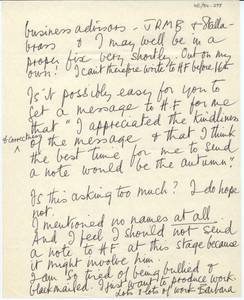 business advisors - JRMB & Stalla-
brass & I may well be in a
proper fix very shortly. Out on my
own! I can't therefore write to HF before 16th
Is it possibly easy for you to
get a message to H.F for me
that "I appreciated the kindness
& correctness
of the message & that I think
the best time for me to send
a note would be the autumn".
Is this asking too much? I do hope
not.
I mentioned no names at all.
And I feel I should not send
a note to HF at this stage because
it might involve him.
I am so tired of being bullied &
blackmailed. I just want to produce work.
lots & lots of work Barbara